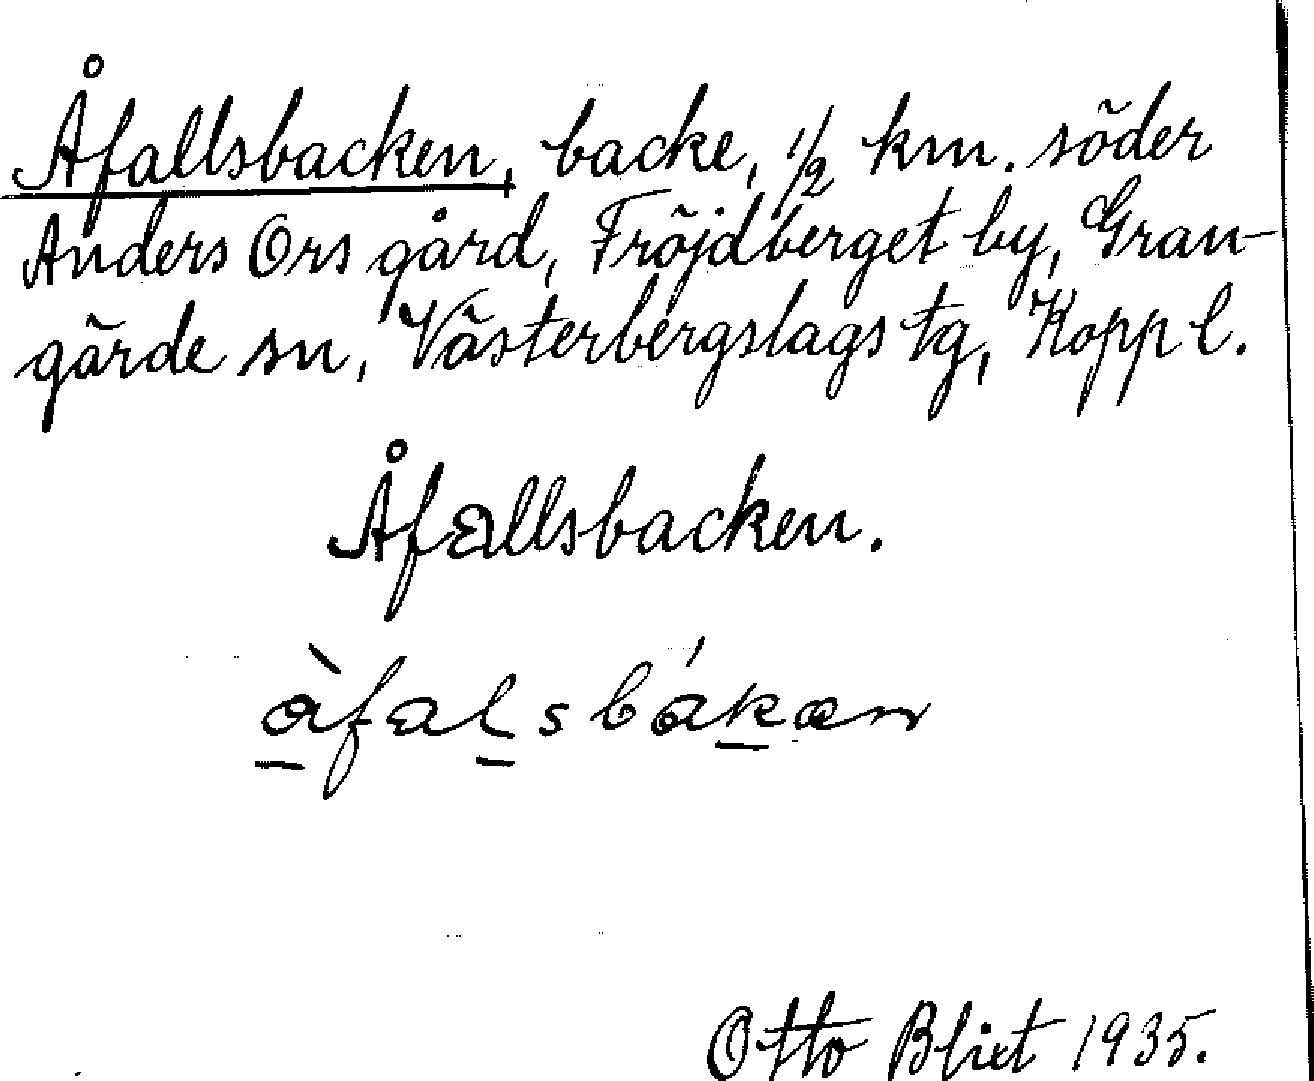 Åfallsbacken, backe, 1/2 km. söder
Anders Ors gård, Fröjdberget by, Gran-
gärde sn, Västerbergslags tg, Kopp l.
Åfallsbacken.
å̀falsbákæn
Otto Blixt 1935.